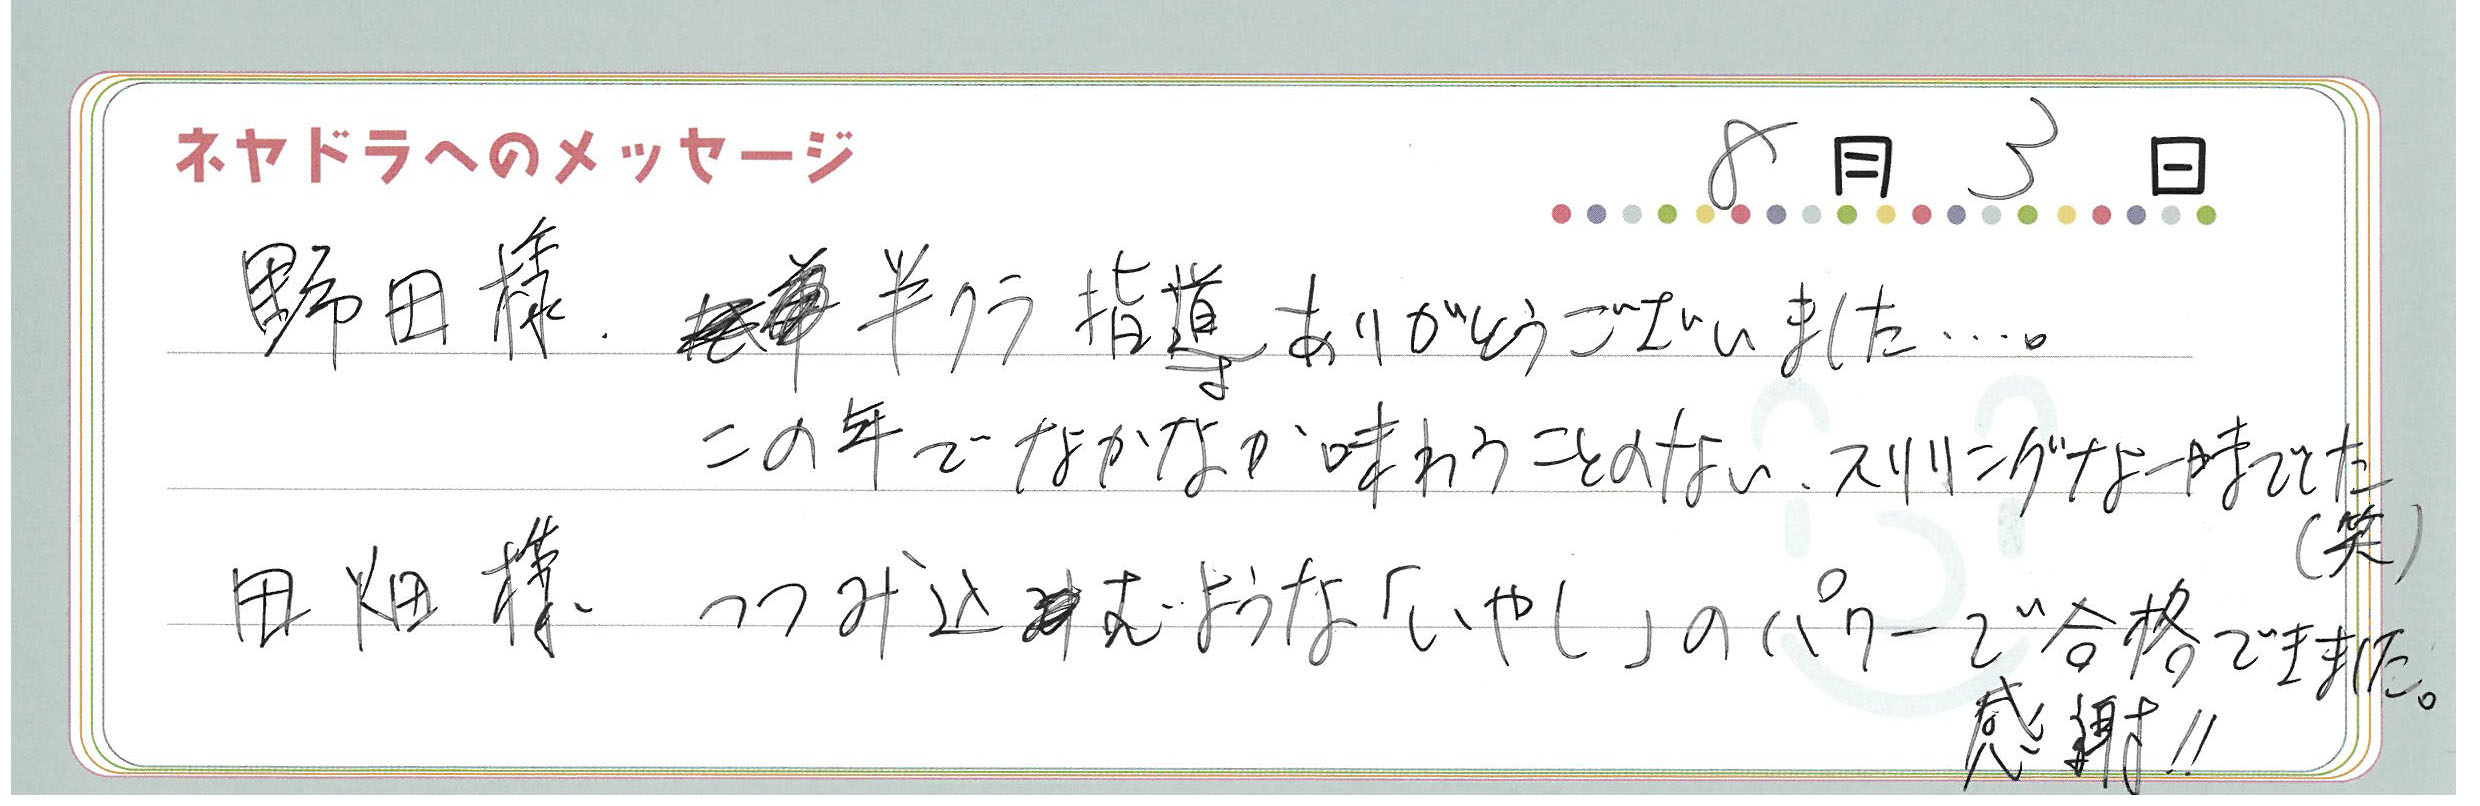 ネヤドラへのメッセージ
8月3日
野田様. 半クラ指導ありがとうございました….。
この年でなかなか味わうことのない、スリリングな一時でした
(笑)
田畑様、 つつみ込むような「いやし」のパワーで合格できました。
感謝!!